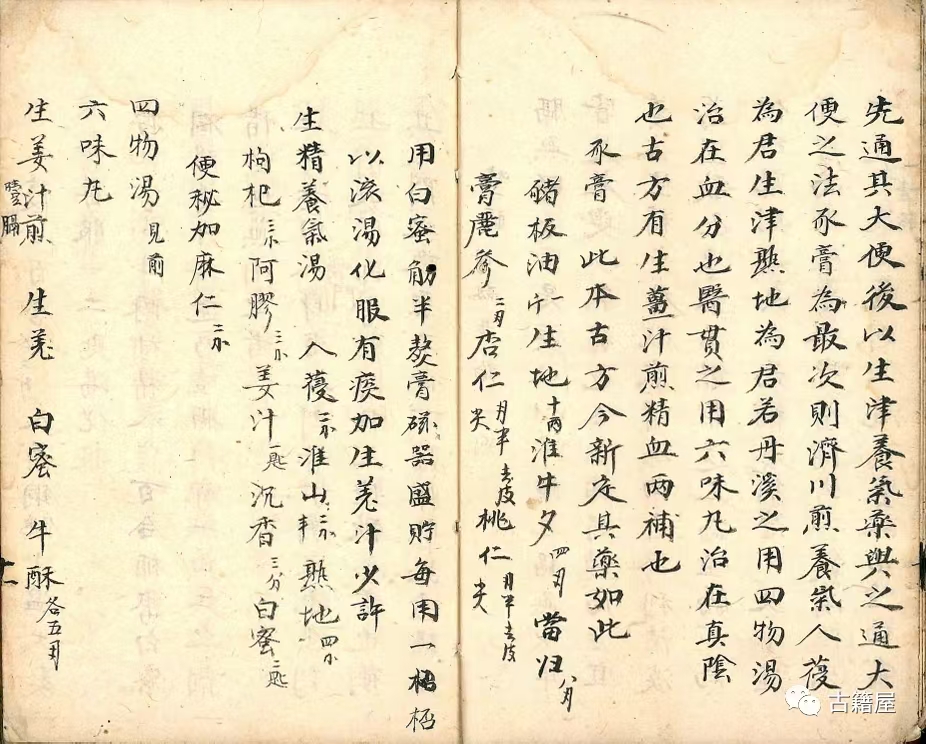 先通其大便後以生津養氣藥與之通大
便之法豕膏為最次則濟川煎養氣人葠
為君生津熟地為君若丹溪之用四物湯
治在血分也醫貫之用六味丸治在真陰
也古方有生薑汁煎精血兩補也
豕膏 此本古方今新定其藥如此
豬板油一斤生地十両淮牛夕四月當归八月
膏麗參二月杏仁月半去皮尖桃仁月半去皮尖
用白蜜觔半熬膏磁器盛貯每用一
以滚湯化服有痰加生羌汁少許
生精養氣湯 人葠 淮山 熟地四
枸杞三 阿膠三 姜汁一匙沉香三分白蜜二匙
便秘加麻仁二
四物湯 見前
六味丸
生姜汁煎 膈 生羌 白蜜 牛酥各五月
十一
古籍屋